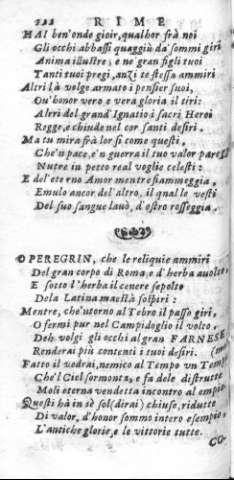 122 RIME
HAI ben'onde gioir, qualhor frà noi
Gli occhi abbassi quaggiù da' sommi giri
Anima illustre; e ne' gran figli tuoi
Tanti tuoi pregi, anzi te stessa ammiri
Altri là volge armato i pensier suoi,
Ou'honor vero e vera gloria il tiri:
Altri del grand'Ignatio i sacri Heroi
Regge, e chiude nel cor santi desiri.
Ma tu mira frà lor sì come questi,
Che'n pace, e'n guerra il tuo valor
Nutre in petto real voglie celesti:
E del'eterno Amor mentre fiammeggia,
Emulo ancor del'altro, il qual le vesti
Del suo sangue lauò, d'ostro rosseggia.
O PEREGRIN, che le reliquie ammiri
Del gran corpo di Roma, e d'herba auolto,
E sotto l'herba il cenere sepolto
Dela Latina maestà sospiri:
Mentre, che'ntorno al Tebro il passo giri,
O fermi pur nel Campidoglio il volto,
Deh volgi gli occhi al gran FARNESE
Renderai più contenti i tuoi desiri.
Fatto il vedrai, nemico al Tempo vn Tempio
Che'l Ciel sormonta, e fa dele distrutte
Moli eterna vendetta incontro al empio
Questi hà in sè sol (dirai) chiuse, ridutte
Di valor, d'honor sommo intero esempio
L'antiche glorie, e le vittorie tutte.